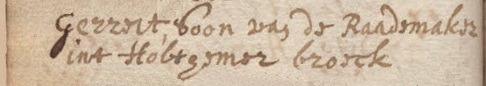 Gerreit, soon van de Raademaker
int Hobtgemer broeck